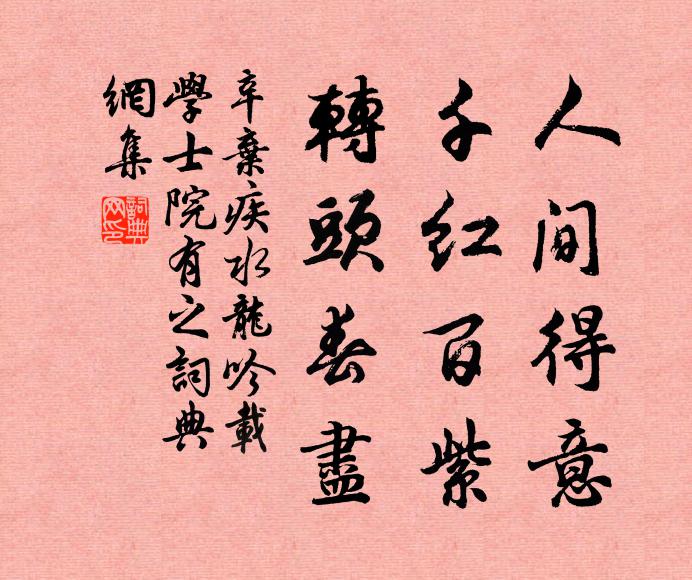 人間得意
千紅百紫
轉頭春盡
辛棄疾水龍吟載
學士院有之詞典
網集
詞典網印